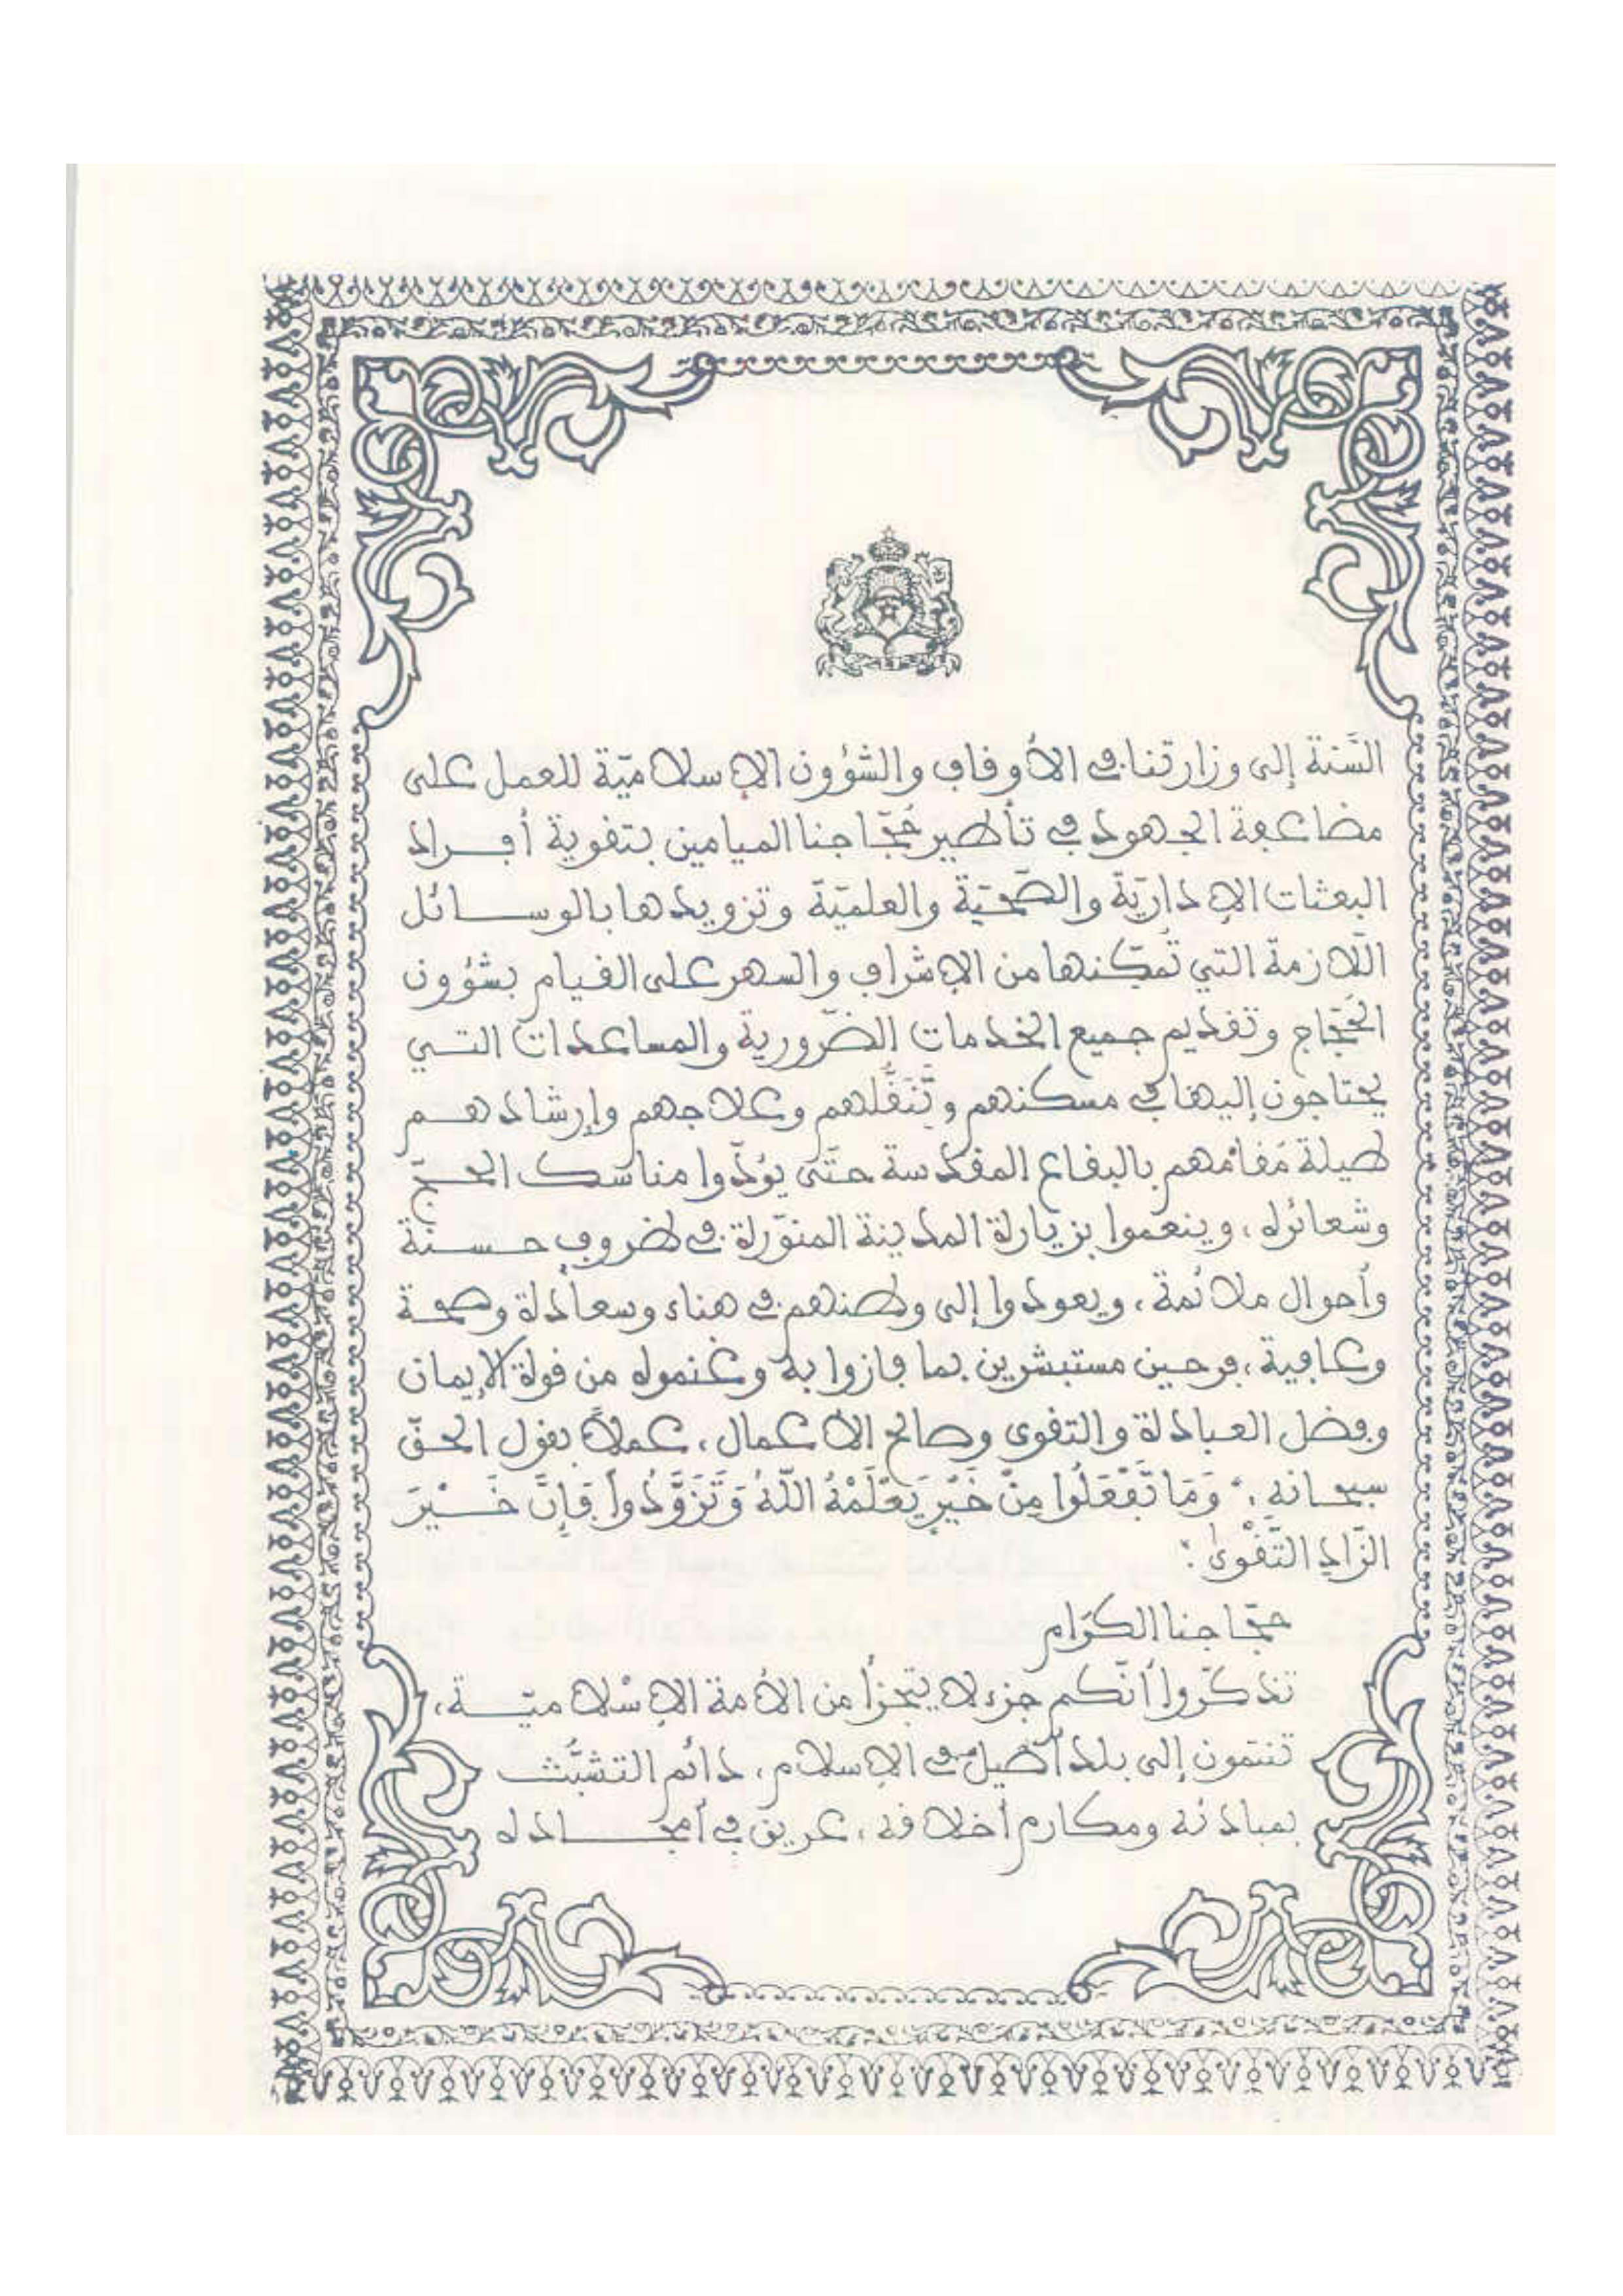 السّنة إلى وزارتنا في الأوقاف والشؤون الإسلاميّة للعمل على
مضاعفة الجهود في تأطير حُجّاجنا الميامين بتقوية أفراد
البعثات الإداريّة والصّحّيّة والعلميّة وتزويدها بالوسائل
اللّازمة التي تُمكّنها من الإشراف والسهر على القيام بشؤون
الحُجّاج وتقديم جميع الخدمات الضّرورية والمساعدات التي
يحتاجون إليها في مسكنهم وتَنَقُّلهم وعلاجهم وإرشادهم
طيلة مُقامهم بالبقاع المقدسة حتّى يؤدّوا مناسك الحجّ
وشعائره، وينعموا بزيارة المدينة المنوّرة في ظروف حسنة
وأحوال ملائمة، ويعودوا إلى وطنهم في هناء وسعادة وصحة
وعافية، فرحين مستبشرين بما فازوا به وغنموه من قوة الإيمان
وفضل العبادة والتقوى وصالح الأعمال، عملاً بقول الحقّ
سبحانه : "وَمَا تَفْعَلُوا مِنْ خَيْرٍ يَعْلَمْهُ اللّهُ وَتَزَوَّدُوا فَإِنَّ خَيْرَ
الزّادِ التَّقْوىٰ".
حجّاجنا الكرام
تذكّروا أنّكم جزء لا يتجزأ من الأمة الإسْلاميّة،
تنتمون إلى بلد أصيل في الإسلام، دائم التشبّث
بمبادئه ومكارم أخلاقه، عريق في أمجاده